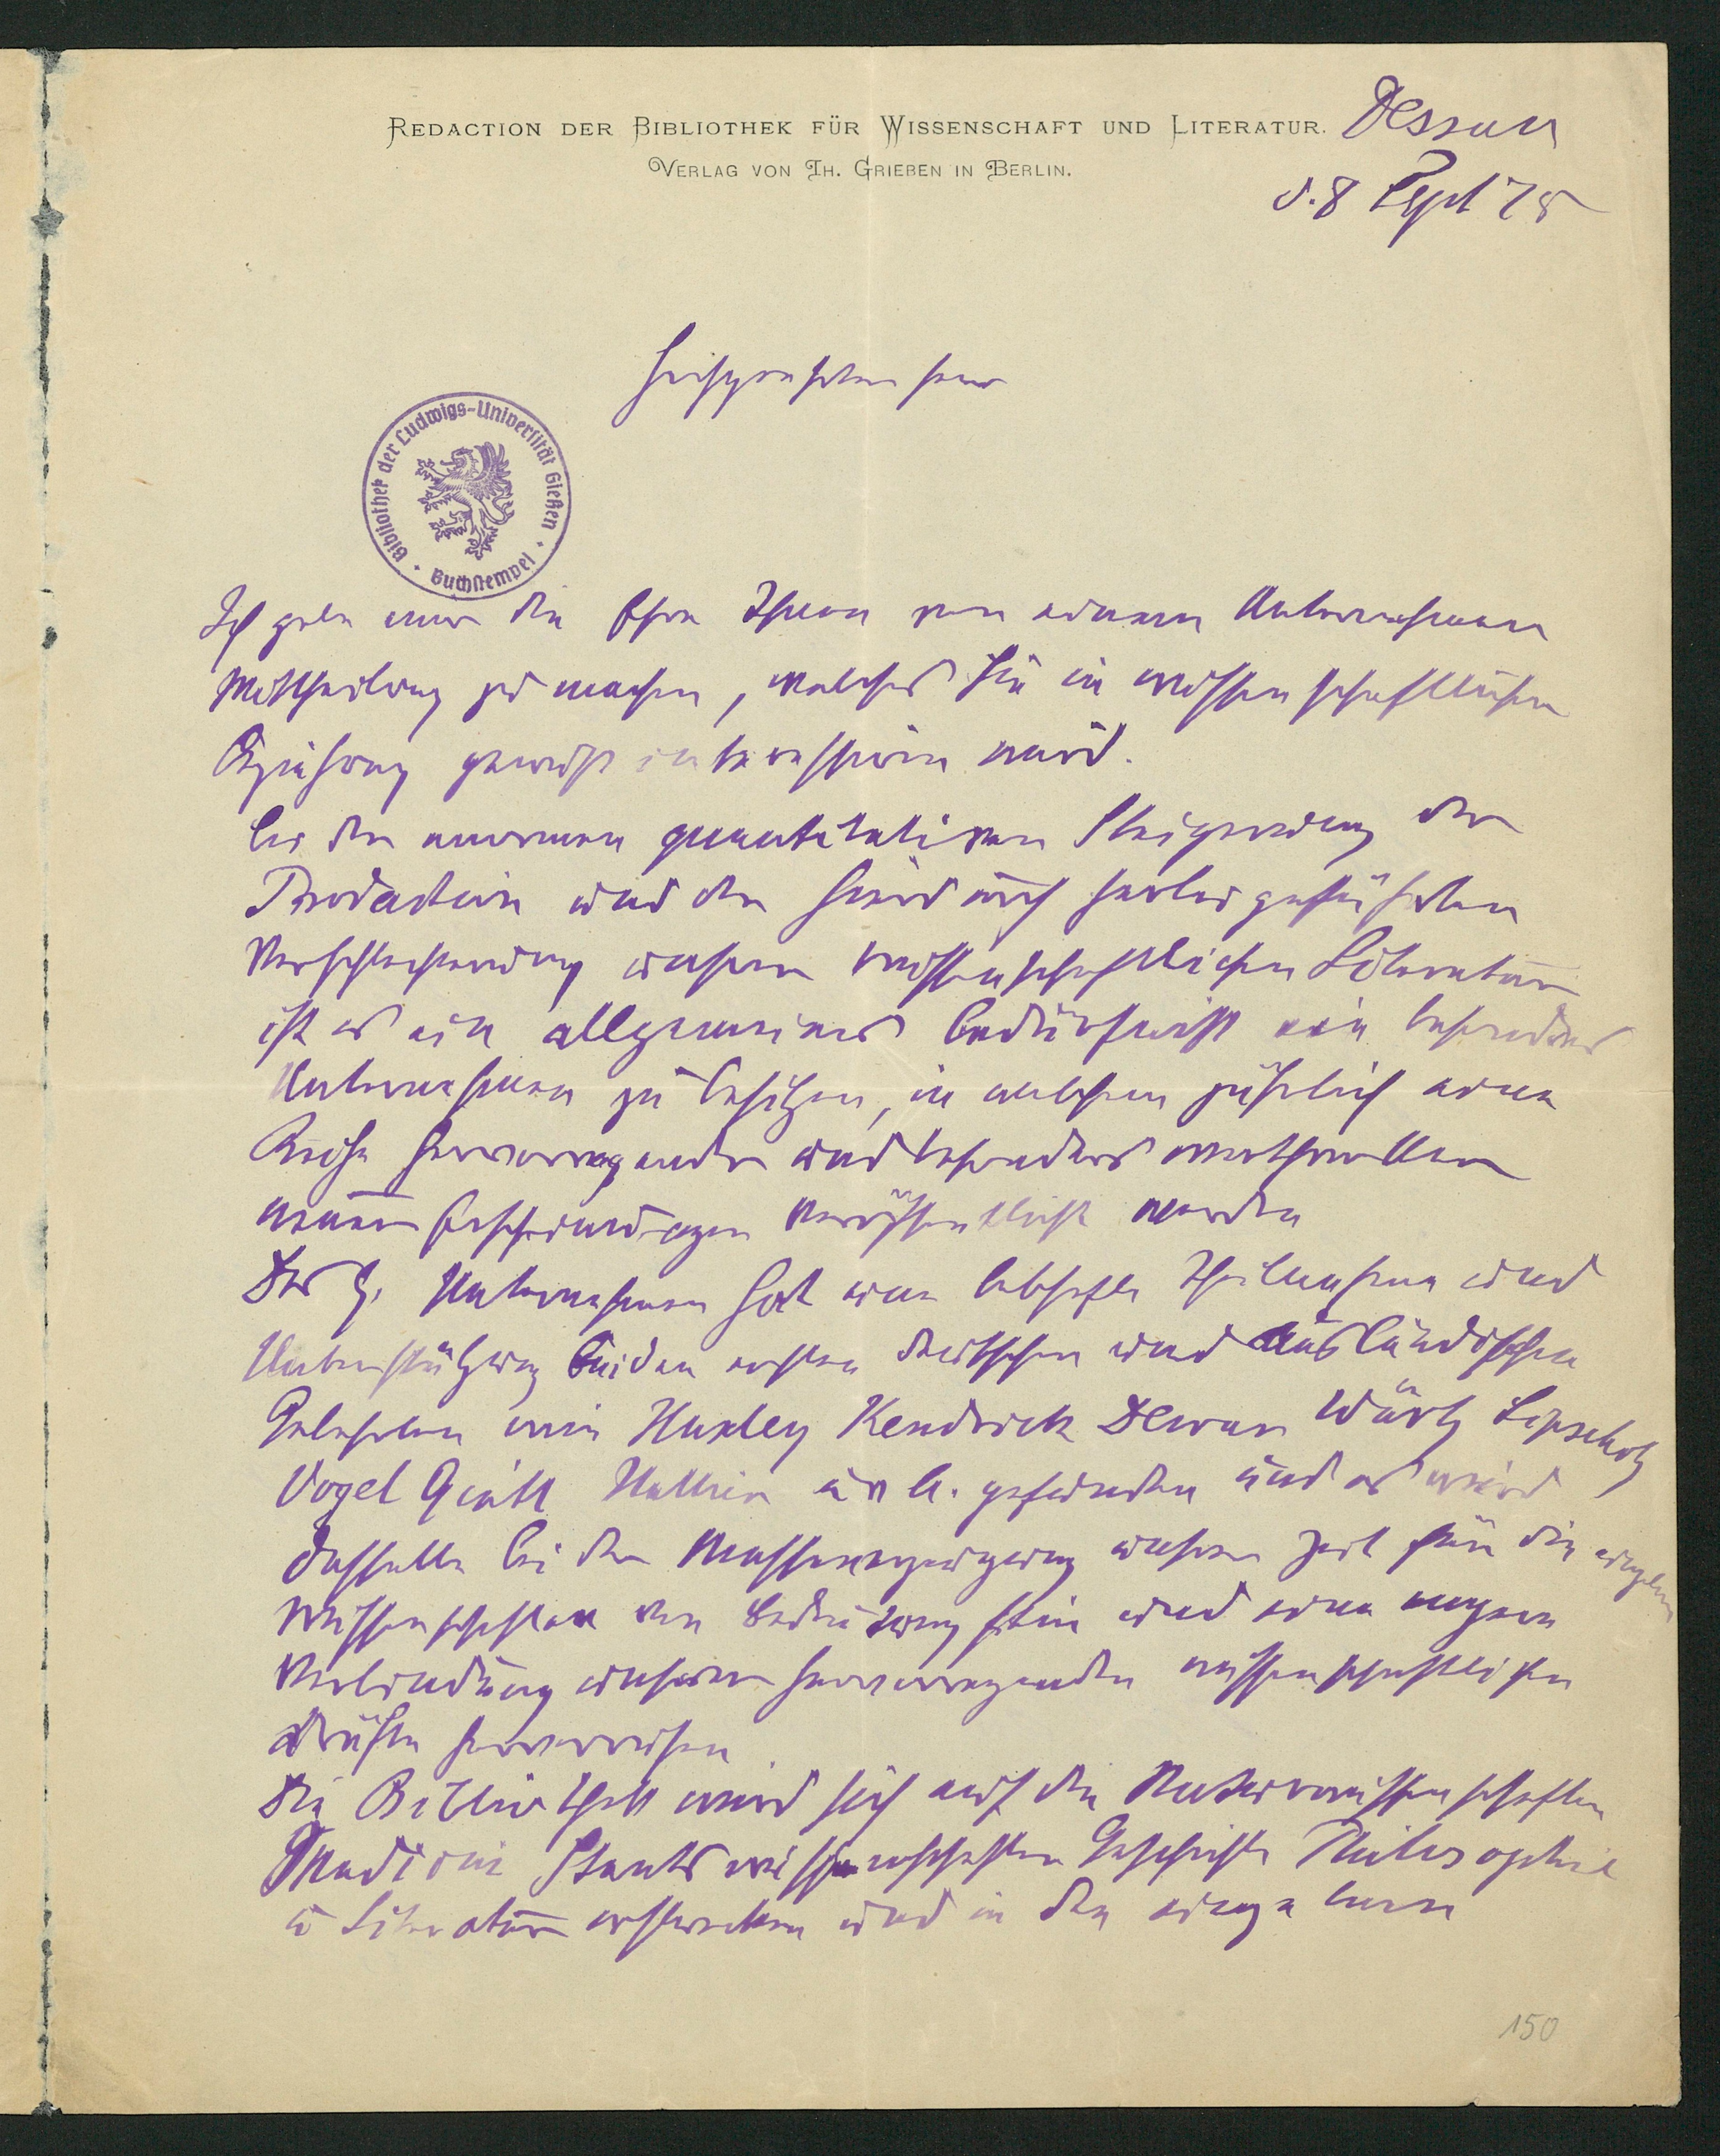 REDACTION DER BIBLIOTHEK FÜR WISSENSCHAFT UND LITERATUR.
VERLAG VON TH. GRIEBEN IN BERLIN.
Dessau
d. 8 Sept 75
Hochgeehrter Herr
Bibliothek der Ludwigs-Universität Gießen · Buchstempel ·
Ich gebe mir die Ehre Ihnen von einem Unternehmen
Mittheilung zu machen, welches Sie in wissenschaftlicher
Beziehung gewiß interessiren wird.
Bei der enormen quantitativen Steigerung der
Production und der hierdurch herbeigeführten
Verschlechterung unserer wissenschaftlichen Literatur
ist es ein allgemeines Bedürfniß ein besonderes
Unternehmen zu besitzen, in welchem jährlich eine
Reihe hervorragender und besonders werthvoller
neuer Erscheinungen veröffentlicht werden
Das Unternehmen hat eine lebhafte Theilnahme und
Unterstützung bei den ersten deutschen und ausländischen
Gelehrten wie Huxley Kendrick Dewar Würtz Lipschitz
Vogel u A. gefunden und es wird
dasselbe bei der Massenerzeugung unserer Zeit für die einzelnen
Wissenschaften von Bedeutung sein und eine engere
Verbindung unserer hervorragenden wissenschaftlichen
Kräfte hervorrufen
Die Bibliothek wird sich auf die Naturwissenschaften
Medicin Staatswissenschaften Geschichte Philosophie
u Literatur erstrecken und in den einzelnen
150